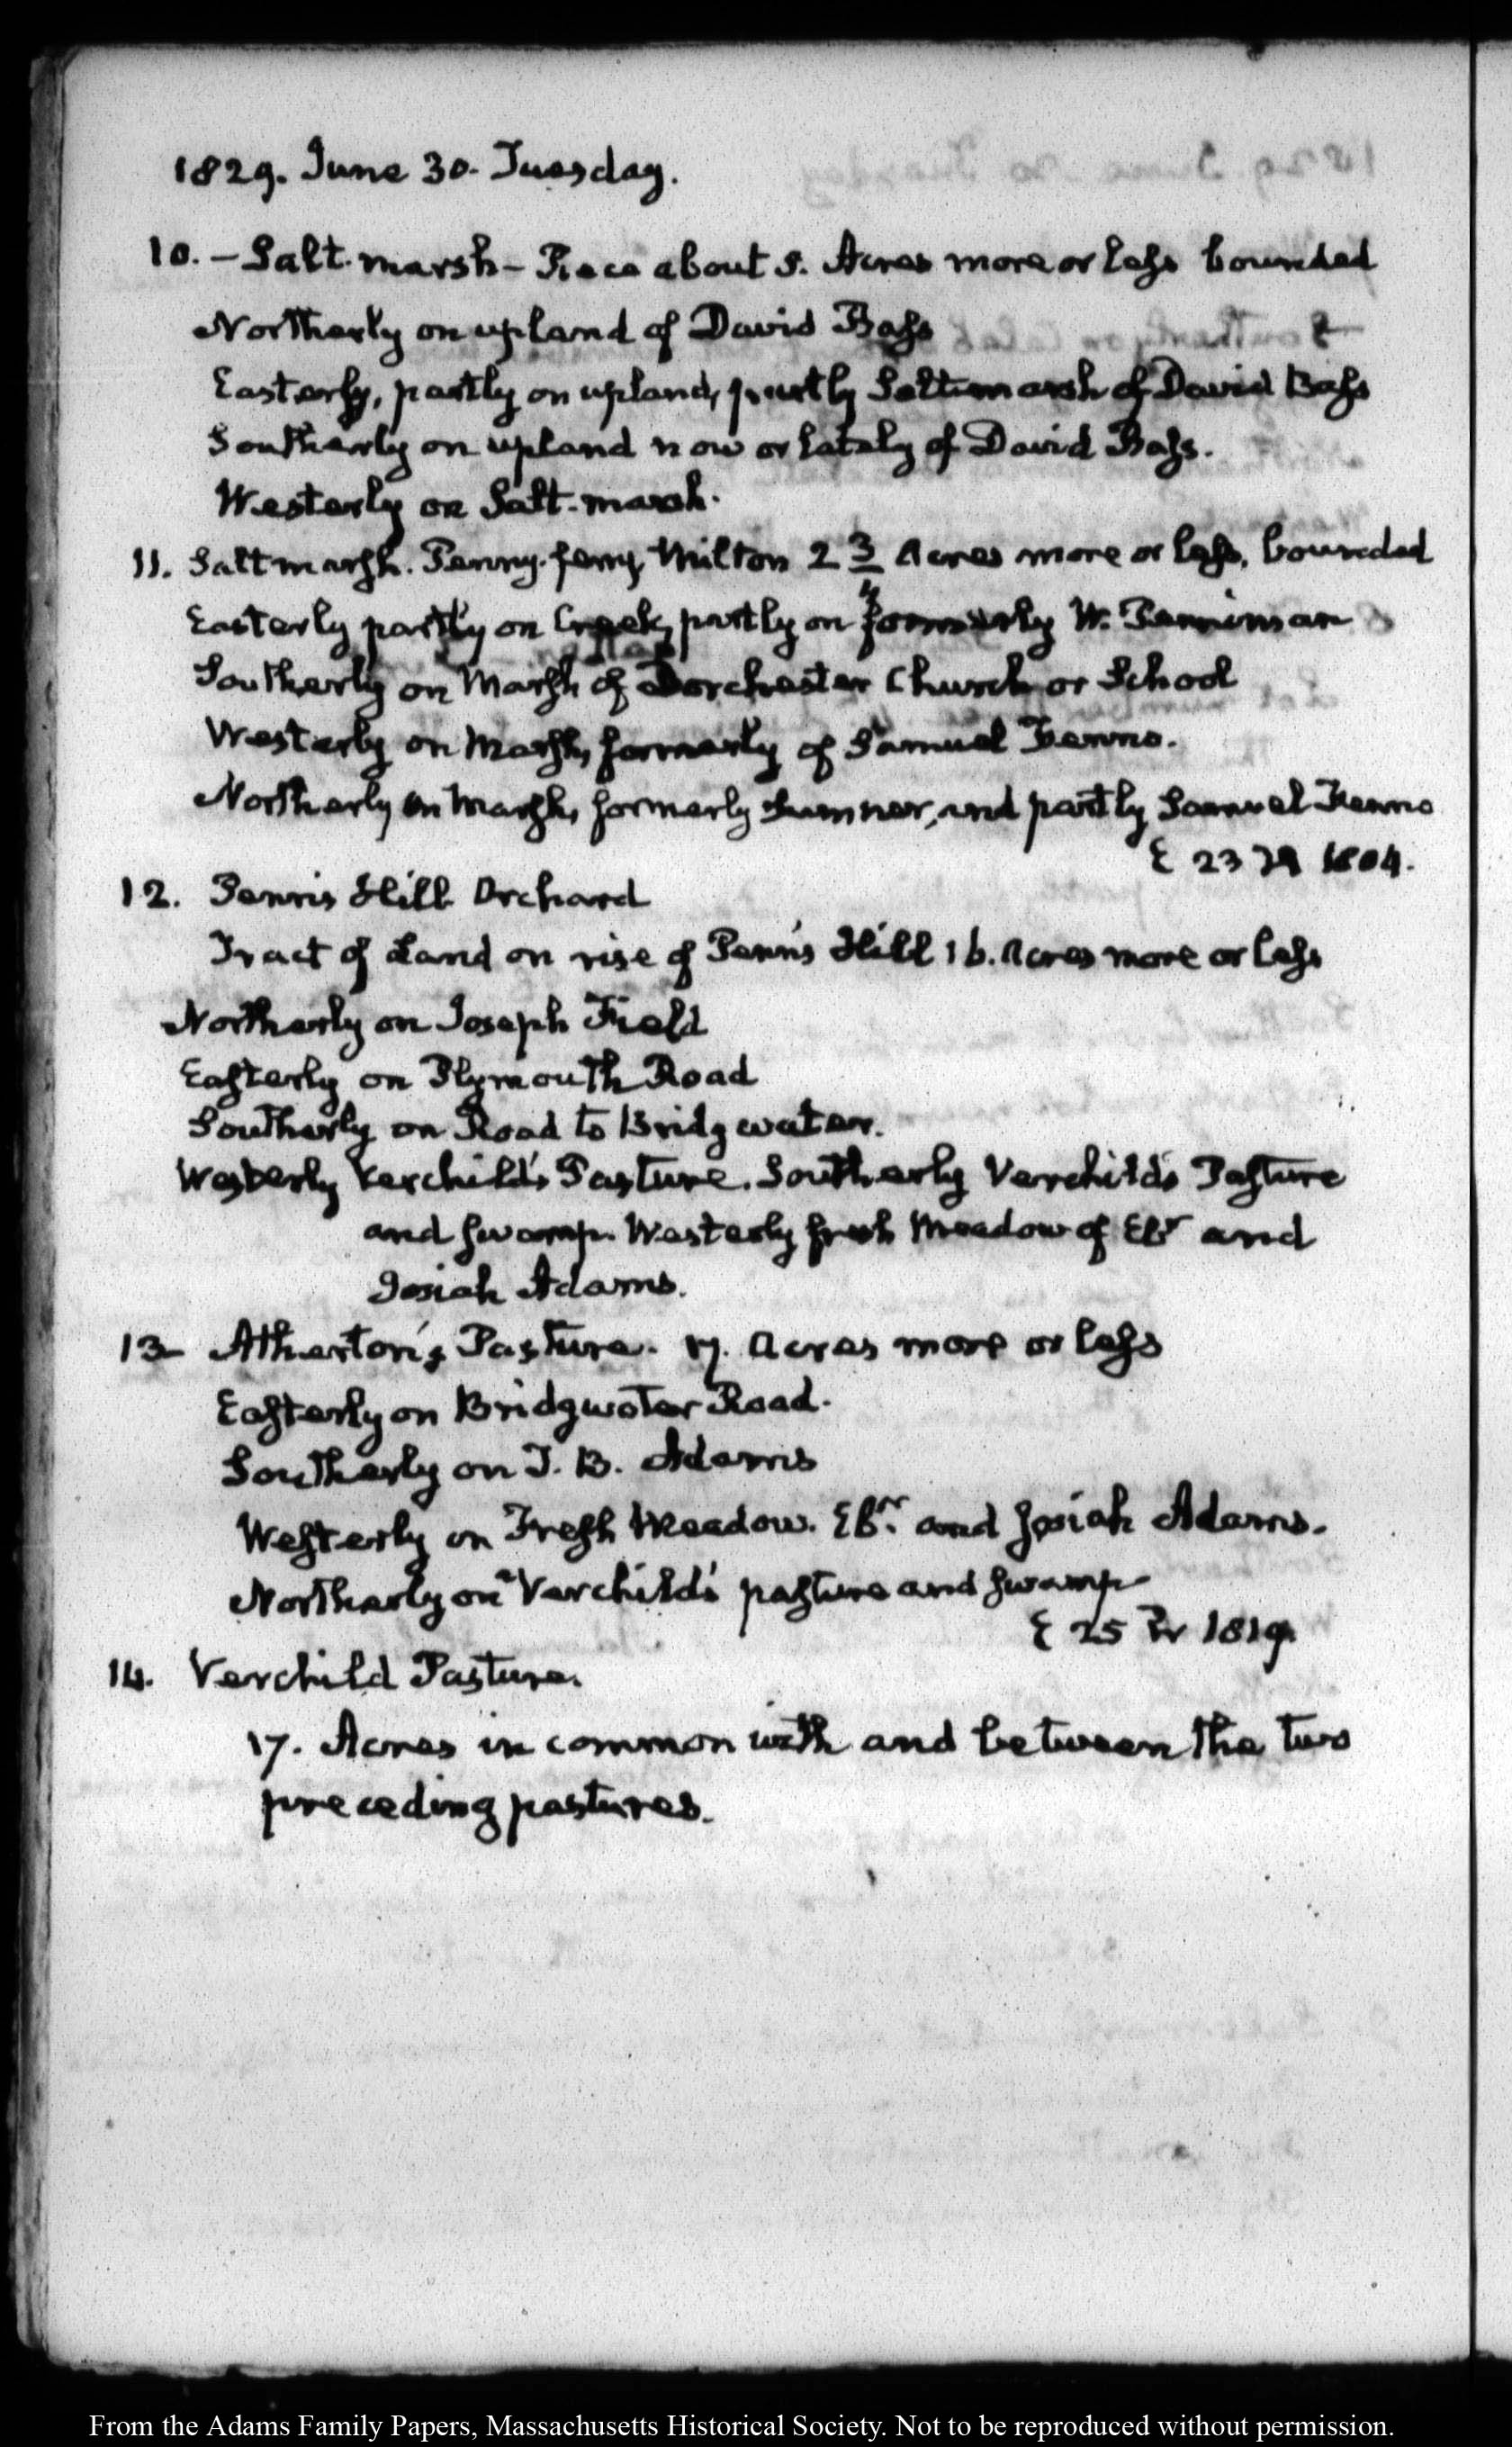 1829. June 30. Tuesday.
10. – Salt. marsh – Piece about 5. Acres more or less bounded
Northerly on upland of David Bass
Easterly, partly on upland, partly Salt marsh of David Bass
Southerly on upland now or lately of David Bass.
Westerly on Salt-marsh.
11. Salt marsh. Penny-ferry, Milton 2 3/4 Acres more or less, bounded
Easterly partly on Creek, partly on formerly W. Penniman
Southerly on Marsh of Dorchester Church or School
Westerly on Marsh, formerly of Samuel Fenno.
Northerly on Marsh, formerly Sumner, and partly Samuel Fenno
E 23 1804.
12. Penn's Hill Orchard
Tract of Land on rise of Penn's Hill 16. Acres more or less
Northerly on Joseph Field
Easterly on Plymouth Road
Southerly on Road to Bridgwater.
Westerly Verchild's Pasture. Southerly Verchild's Pasture
and swamp. Westerly fresh Meadow of Ebr and
Josiah Adams.
13– Atherton's Pasture. 17. Acres more or less
Easterly on Bridgwater Road.
Southerly on T. B. Adams
Westerly on Fresh Meadow. Ebr. and Josiah Adams.
Northerly on Verchild's pasture and swamp
E 25 1819
14. Verchild Pasture.
17. Acres in common with and between the two
preceding pastures.
From the Adams Family Papers, Massachusetts Historical Society. Not to be reproduced without permission.